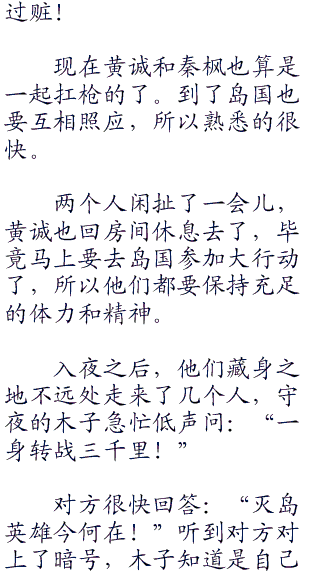 过赃！
现在黄诚和秦枫也算是
一起扛枪的了。到了岛国也
要互相照应，所以熟悉的很
快。
两个人闲扯了一会儿，
黄诚也回房间休息去了，毕
竟马上要去岛国参加大行动
了，所以他们都要保持充足
的体力和精神。
入夜之后，他们藏身之
地不远处走来了几个人，守
夜的木子急忙低声问：“一
身转战三千里！”
对方很快回答：“灭岛
英雄今何在！”听到对方对
上了暗号，木子知道是自己